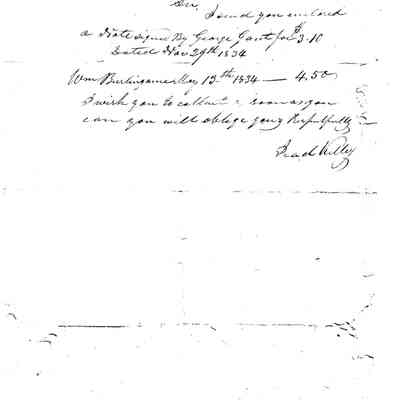 Sir,
I send you enclosed
a Note signed By George Gant for $3.10
Dated Nov 29th 1834
Wm Burlingame May 12th 1834 — 4.50
I wish you to collect as soon as you
can you will oblige yours Respectfully